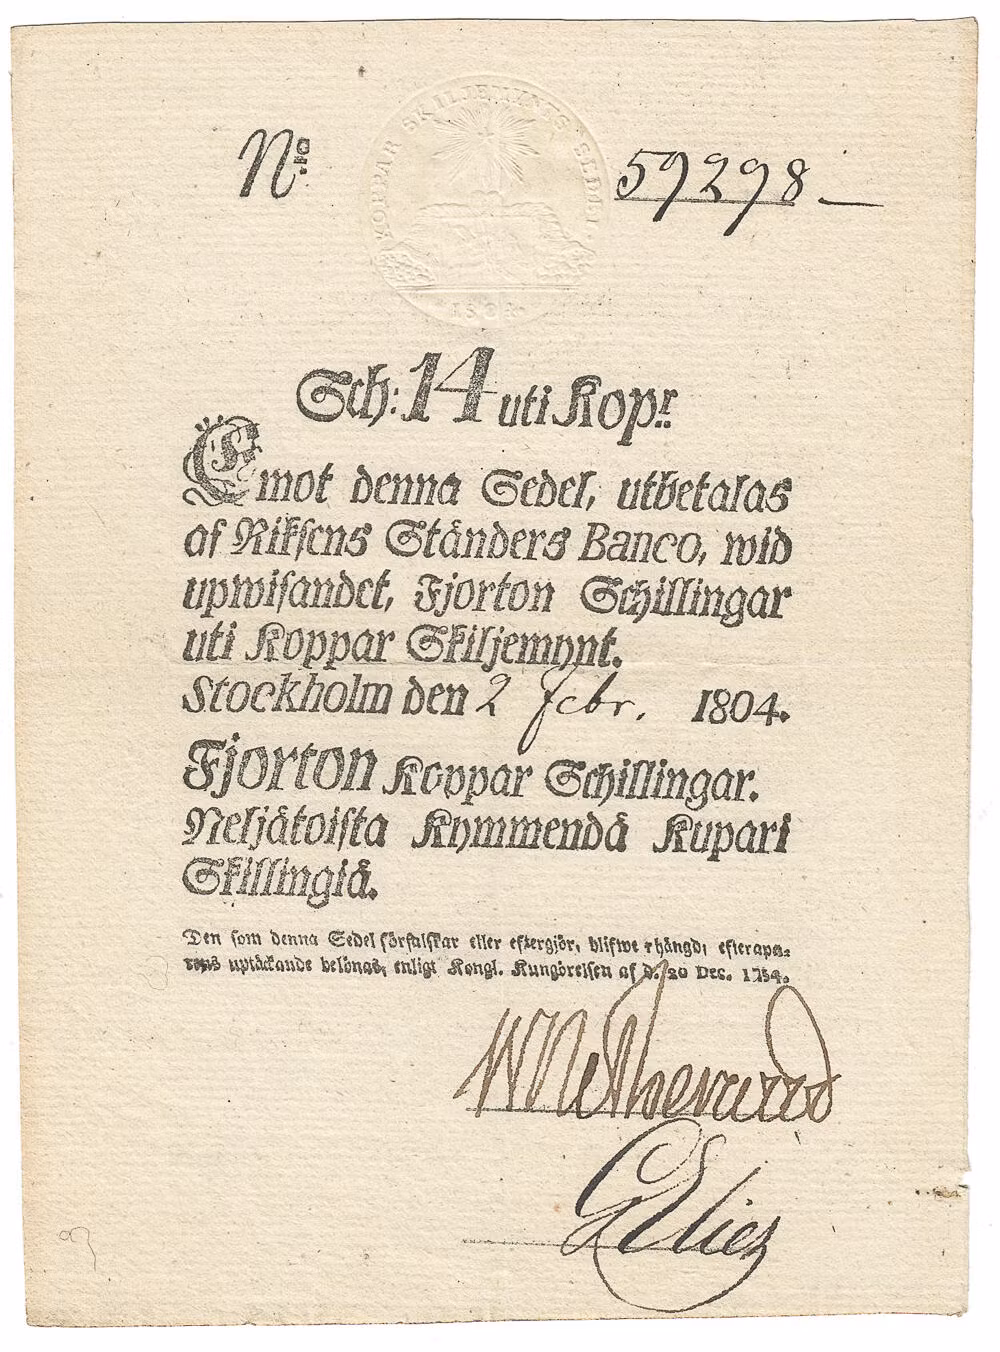 KOPPAR SKILJEMYNTS SEDEL
1803
No. 59298
Sch: 14 uti Kop:r
Emot denna Sedel, utbetalas
af Riksens Ständers Banco, wid
upwisandet, Fjorton Schillingar
uti Koppar Skiljemynt.
Stockholm den 2 Febr. 1804.
Fjorton Koppar Schillingar.
Neljätoista Kymmendä Kupari
Skillingiä.
Den som denna Sedel förfalskar eller eftergiör, blifwe hängd; efterapa-
rens uptäckande belönas; enligt Kongl. Kungörelsen af d. 20 Dec. 1754.